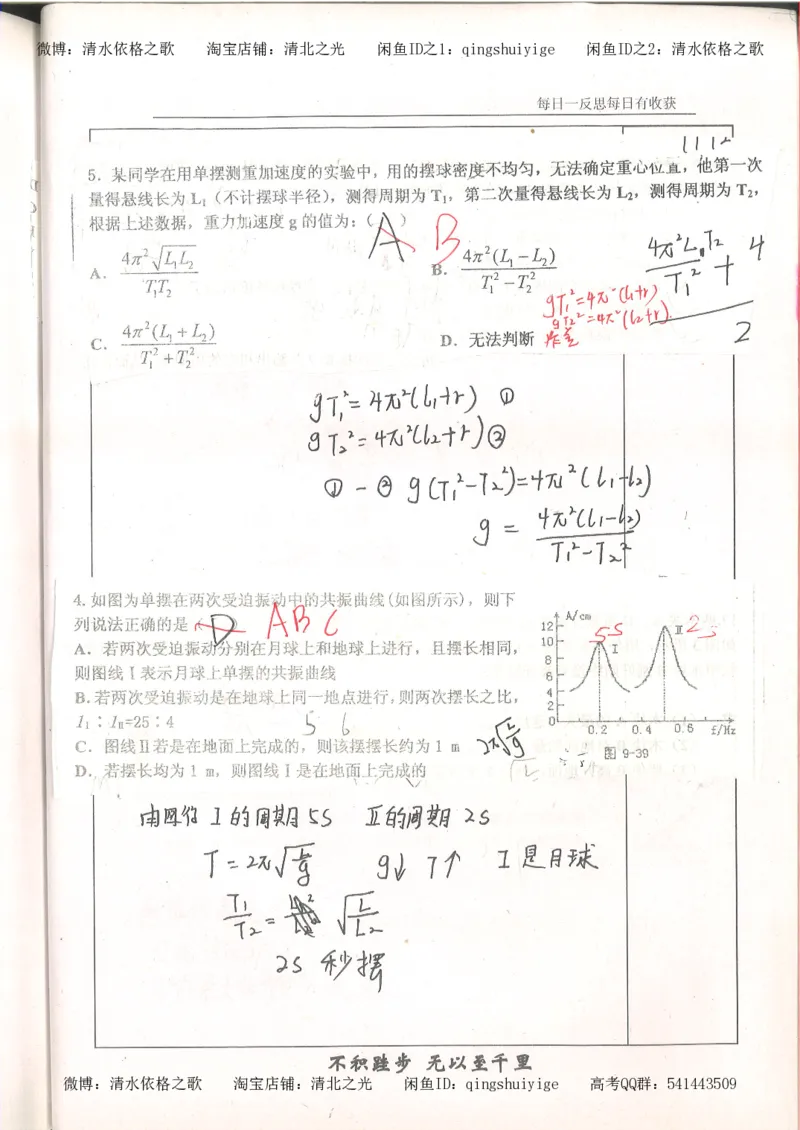 微博：清水依格之歌 淘宝店铺：清北之光 闲鱼ID之1：qingshuiyige 闲鱼ID之2：清水依格之歌
每日一反思每日有收获
5. 某同学在用单摆测重加速度的实验中，用的摆球密度不均匀，无法确定重心位置，他第一次
量得悬线长为 L₁（不计摆球半径），测得周期为 T₁，第二次量得悬线长为 L₂，测得周期为 T₂，
根据上述数据，重力加速度 g 的值为：（ ）
A B
A. 4π²√(L₁L₂) / T₁T₂
B. 4π²(L₁－L₂) / T₁²－T₂²
C. 4π²(L₁＋L₂) / T₁²＋T₂²
D. 无法判断
gT₁²=4π²(l₁+r)
gT₂²=4π²(l₂+r)
gT₁²=4π²(l₁+r) ①
gT₂²=4π²(l₂+r) ②
①－② g(T₁²－T₂²)=4π²(l₁-l₂)
g = 4π²(l₁-l₂) / T₁²－T₂²
4. 如图为单摆在两次受迫振动中的共振曲线(如图所示)，则下
列说法正确的是
D ABC
A. 若两次受迫振动分别在月球上和地球上进行，且摆长相同，
则图线Ⅰ表示月球上单摆的共振曲线
B. 若两次受迫振动是在地球上同一地点进行，则两次摆长之比，
l₁：lⅡ=25：4
C. 图线Ⅱ若是在地面上完成的，则该摆摆长约为 1 m
D. 若摆长均为 1 m，则图线Ⅰ是在地面上完成的
A/cm
12
10
8
6
4
2
0
0.2 0.4 0.6 f/Hz
5S
Ⅰ
Ⅱ
2s
图 9-39
2π√(L/g)
由图得 Ⅰ的周期5S Ⅱ的周期 2S
T=2π√(L/g) g↓ T↑ Ⅰ是月球
T₁/T₂ = √(L/L₂)
2s 秒摆
不积跬步 无以至千里
微博：清水依格之歌 淘宝店铺：清北之光 闲鱼ID：qingshuiyige 高考QQ群：541443509